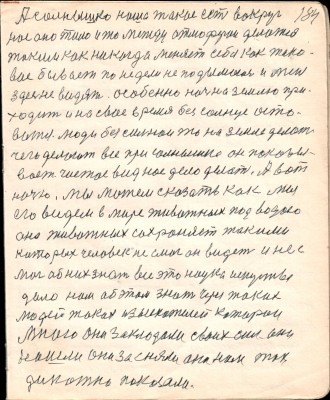 184
А солнышко наше такое сет вокруг
нас оно тало и то между атмосферы делается
таким как никогда меняет себя как тако-
вое бывает по неделе не подымался и мы
здесь не видят. особенно ночь на землю при-
ходит и на свое время без солнце оста-
ваты. Люди без сильного то на земле делают
чего делают все при солнышко он показы-
вает чистое видное дело делат. А вот
ночю, мы можем сказать как мы
его видем в мире животных под водою
она животных сохроняет такими
которых человек не смог он видет и не с
мог об них знат все это наука искуства
дело нам об этом знат суть таких
людей таких изыскателей которои
много они закладали своих сил они
нашли они засняли она нам так
дикатно показали.